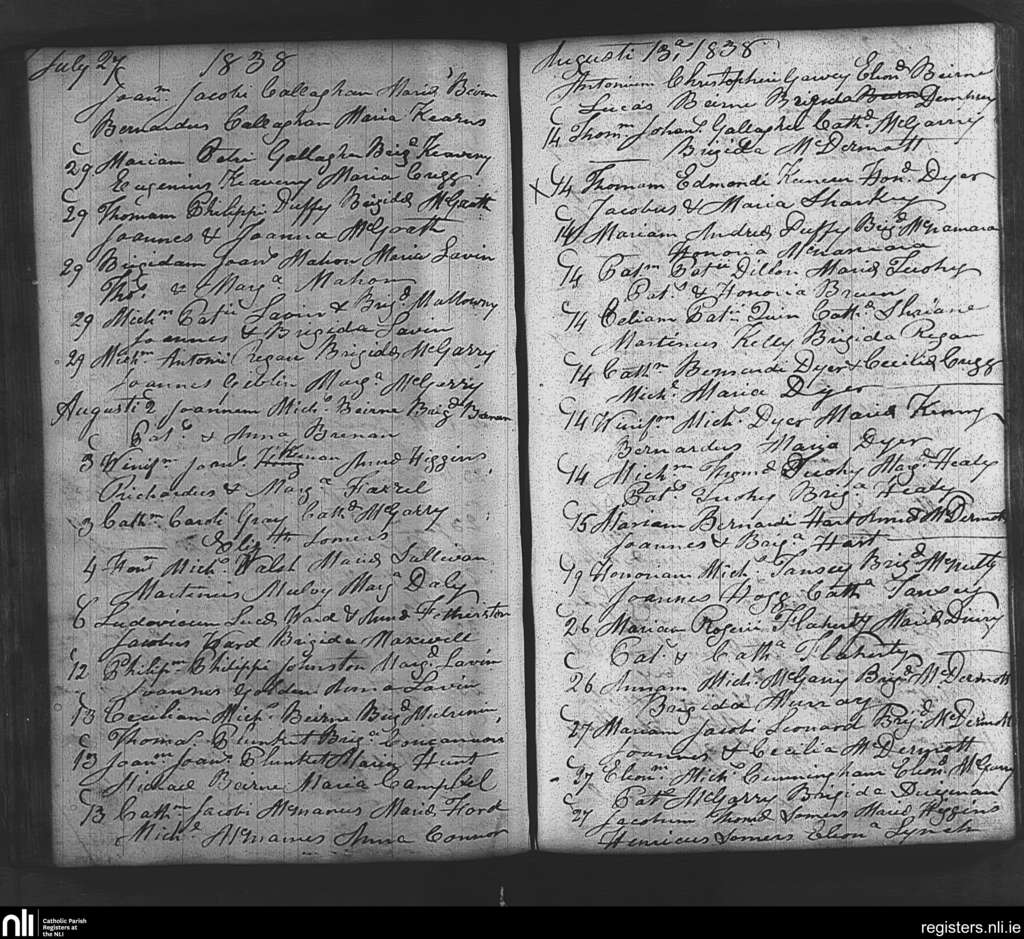 July 27 1838
Joanm Jacobi Callaghan Maria Beirn
Bernardus Callaghan Maria Kearns
29 Mariam Patri Gallagher Brigd Keaveny
Eugenius Keaveny Maria Cregg
29 Thomam Philippi Duffy Brigid McGrath
Joannes & Joanna McGrath
29 Brigidam Joans Mahon Maria Lavin
Thos & Marga Mahon
29 Michm Patii Lavin & Brigd Mallowny
Joannes & Brigida Lavin
29 Michm Antoni Regan Brigid McGarry
Joannes Giblin Marga McGarry
Augusti 2 Joannem Michs Beirne Brigd Brenan
Pats & Anna Brenan
3 Winifm Joans Kenan Anna Higgins
Richardus & Marga Farrel
3 Cathm Caroli Gray Cathd McGarry
Elizth Somers
4 Honm Michs Walsh Maria Sullivan
Martinus Mulvy Marga Daly
6 Ludovicum Lucd Ward & Anna Fetherston
Jacobus Ward Brigida Maxwell
12 Philipm Philippi Johnston Margd Lavin
Joannes Golden Anna Lavin
13 Ceciliam Michs Beirne Brigd Mulrenin
Thomas Plunket Briga Concannon
13 Joanm Joans Plunket Maria Hunt
Michael Beirne Maria Campbel
13 Cathm Jacobi McManus Maria Ford
Michs McManus Anna Connor
Augusti 13a 1838
Antonium Christopheri Garvey Eliond Beirne
Lucas Beirne Brigida Dempsey
14 Thomm Johans Gallagher Cathd McGarry
Brigida McDermott
14 Thomam Edmondi Honod Dyer
Jacobus & Maria Sharkey
14 Mariam Andred Duffy Brigd McNamara
Honoria McNamara
14 Patm Patii Dillon Maria Tuohy
Pats & Honoria Bruen
14 Celiam Patii Quin Cathd
Martinus Kelly Brigida Regan
14 Cathm Bernardi Dyer & Cecilia Cregg
Michs Maria Dyer
14 Winifm Michs Dyer Maria Kenny
Bernardus Maria Dyer
14 Michm Thomd Tuohy Margd Healy
Pats Tuohy Briga Healy
15 Mariam Bernardi Hart Anna McDermott
Joannes & Briga Hart
19 Honoriam Michs Tansey Brigd McNulty
Joannes Hogg Catha Tansey
26 Mariam Rogeri Flaherty Maria
Pats & Catha Flaherty
26 Annam Michs McGarry Brigd McDermott
Brigida Murray
27 Mariam Jacobi Leonard Brigd McDermott
Joannes & Cecilia McDermott
27 Elionm Michs Cunningham Eliond McGarry
Pats McGarry Brigida Duignan
27 Jacobum Thomd Somers Maria Higgins
Henricus Somers Eliona Lynch
nli Catholic Parish
Registers at
the NLI
registers.nli.ie